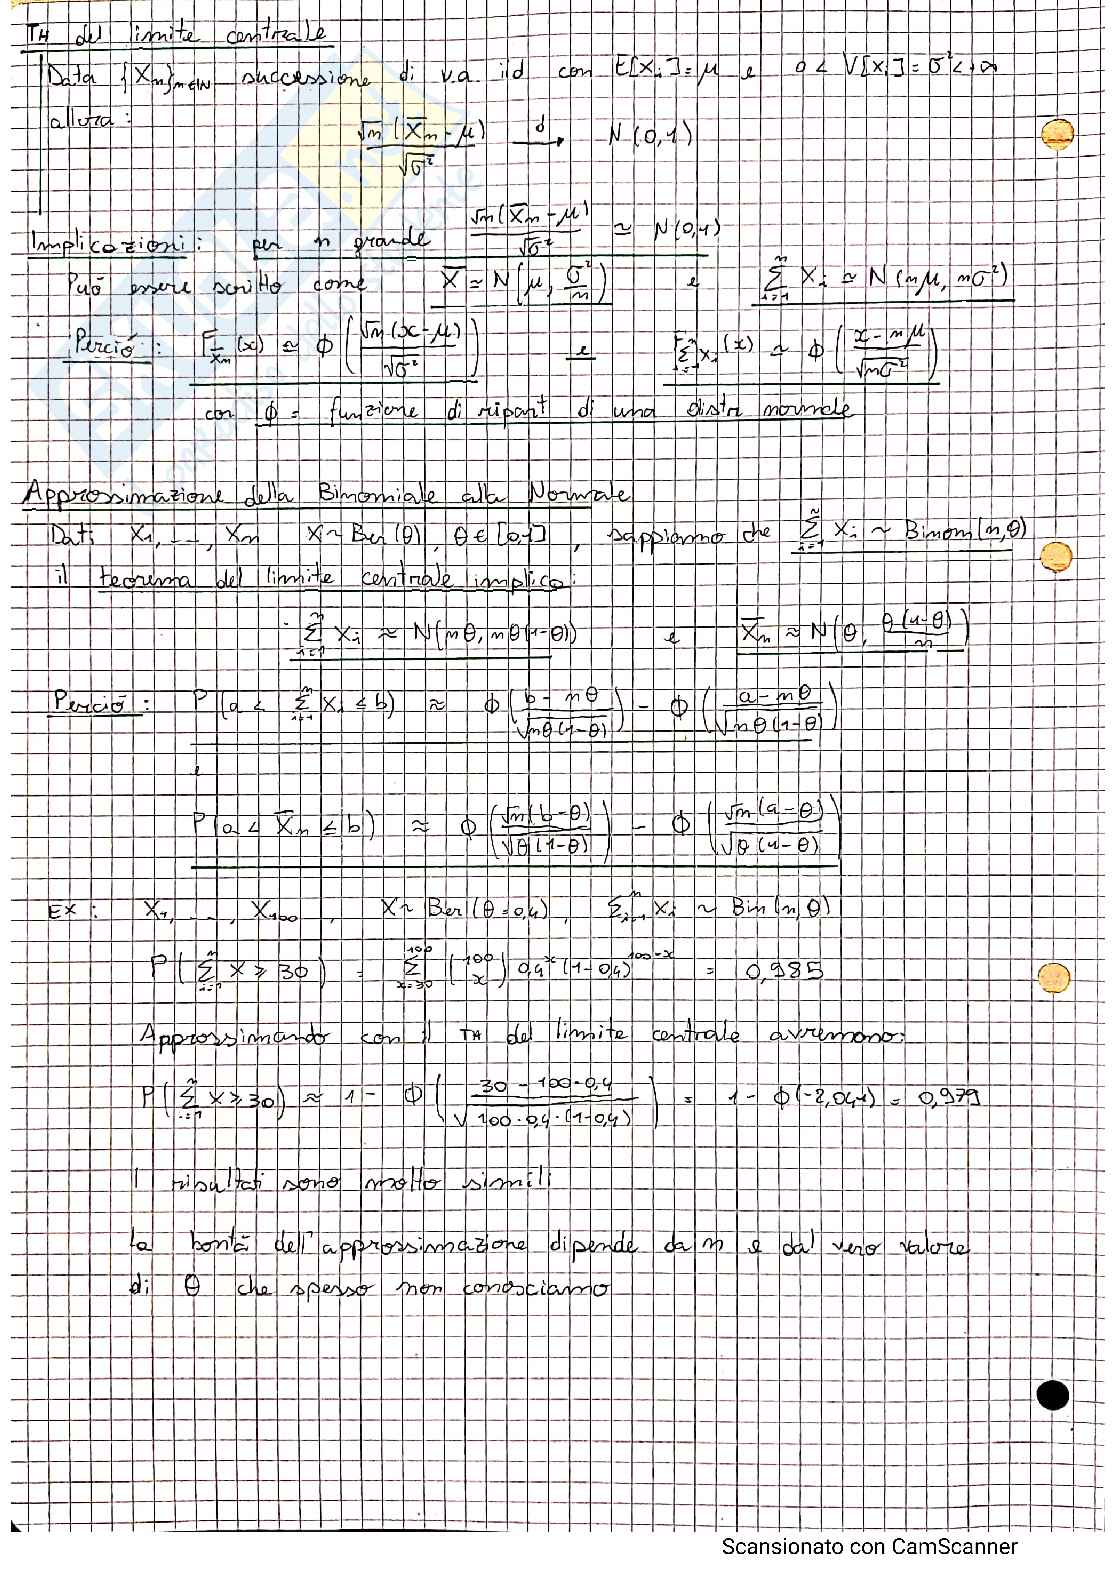 TH del limite centrale
Data {Xn}n∈IN successione di v.a. iid con E[Xi]=μ e 0<V[Xi]=σ²<+∞
allora:
√n (X̄n-μ) / √σ² →d N(0,1)
Implicazioni: per n grande √n(X̄n-μ) / √σ² ≃ N(0,1)
Può essere scritto come X̄ ≃ N(μ, σ²/n) e Σ_{i=1}^{n} Xi ≃ N(nμ, nσ²)
Perciò: F_X̄n(x) ≃ ϕ(√n(x-μ) / √σ²) e F_{Σ_{i=1}^{n} Xi}(x) ≃ ϕ((x-nμ) / √nσ²)
con ϕ = funzione di ripart di una distr normale
Approssimazione della Binomiale alla Normale
Dati X1, ..., Xn X~Ber(θ), θ∈[0,1], sappiamo che Σ_{i=1}^{n} Xi ~ Binom(n,θ)
il teorema del limite centrale implica:
Σ_{i=1}^{n} Xi ≈ N(nθ, nθ(1-θ)) e X̄n ≈ N(θ, θ(1-θ)/n)
Perciò: P(a < Σ_{i=1}^{n} Xi ≤ b) ≈ ϕ((b-nθ) / √nθ(1-θ)) - ϕ((a-nθ) / √nθ(1-θ))
e
P(a < X̄n ≤ b) ≈ ϕ(√n(b-θ) / √θ(1-θ)) - ϕ(√n(a-θ) / √θ(1-θ))
EX: X1, ..., X100, X~Ber(θ=0,4), Σ_{i=1}^{n} Xi ~ Bin(n,θ)
P(Σ_{i=1}^{n} X ≥ 30) = Σ_{x=30}^{100} (100 x) 0,4^x (1-0,4)^{100-x} = 0,985
Approssimando con il TH del limite centrale avremono:
P(Σ_{i=1}^{n} X ≥ 30) ≈ 1- ϕ((30-100·0,4) / √100·0,4·(1-0,4)) = 1-ϕ(-2,041) = 0,979
I risultati sono molto simili
la bontà dell'approssimazione dipende da n e dal vero valore
di θ che spesso non conosciamo
Scansionato con CamScanner